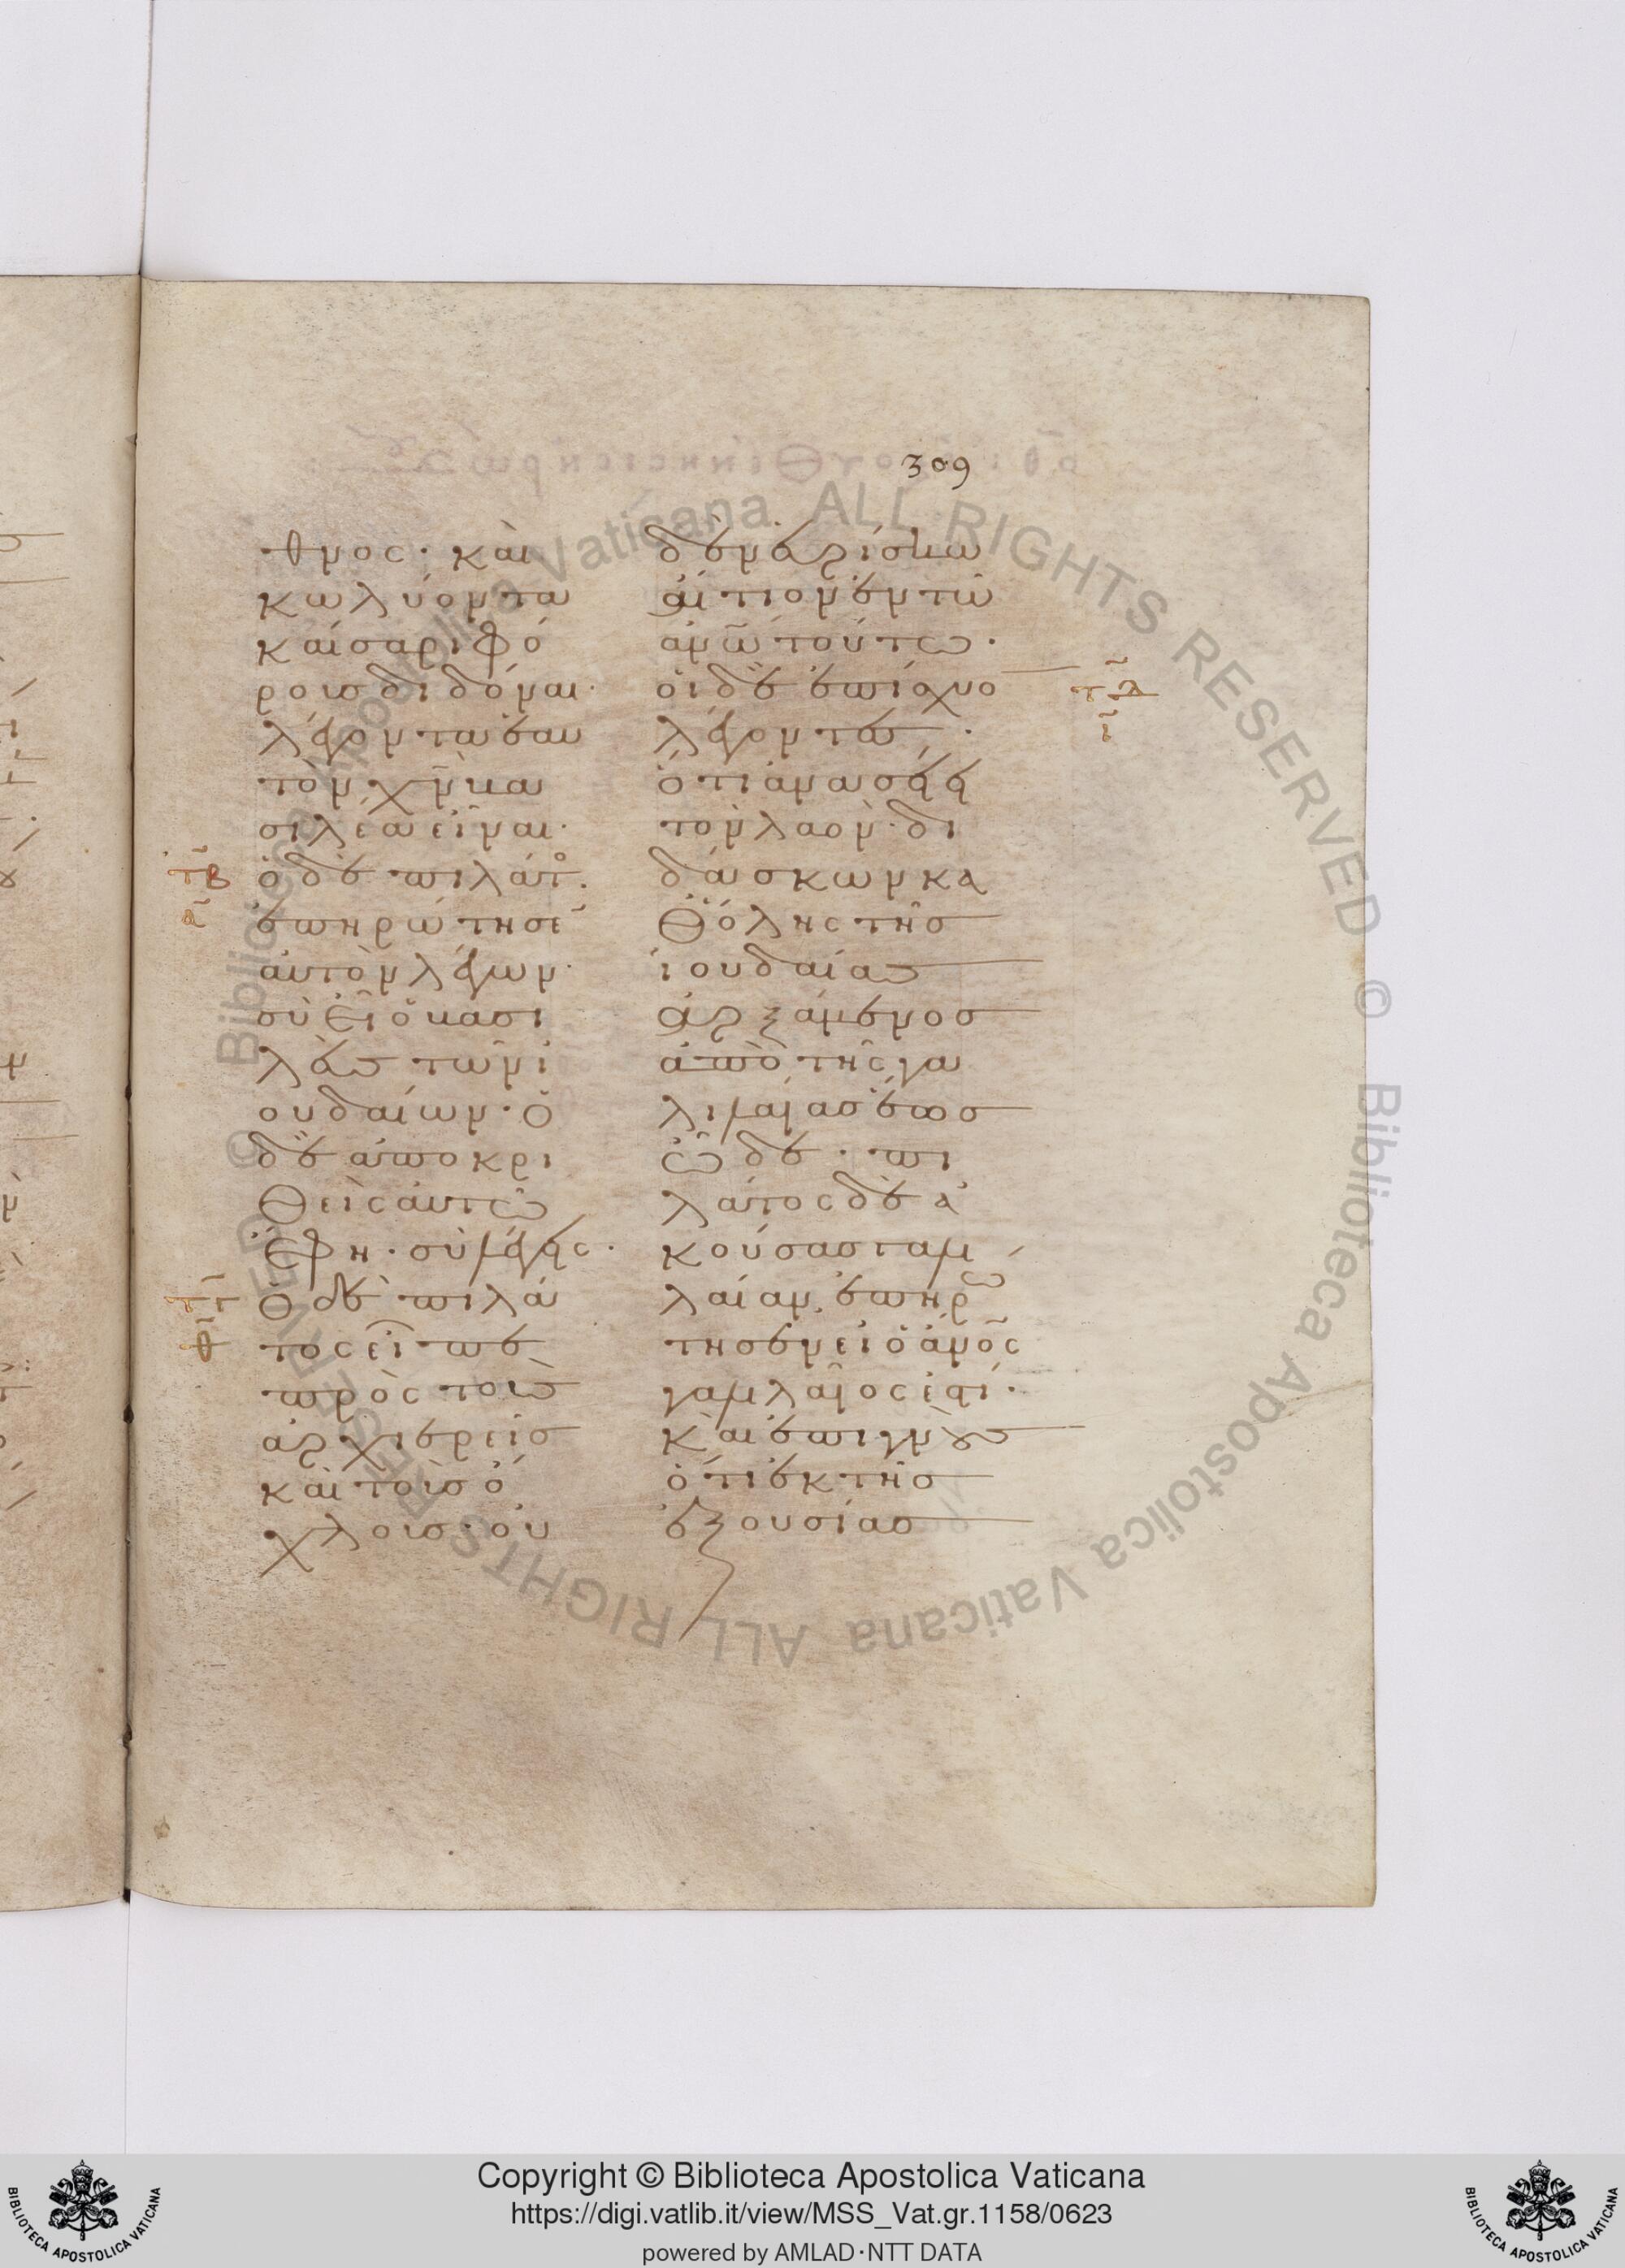 309
θνος· καὶ
κωλύοντα
καίσαρι φό
ρους διδόναι·
λέγοντα ἑαυ
τὸν χν̅ βα
σιλέα εἶναι·
ὁ δὲ πιλάτο.
ἐπηρώτησε
αὐτὸν λέγων·
σὺ εἶ ὁ βασι
λεὺς τῶν ἰ
ουδαίων· ὁ
δὲ ἀποκρι
θεὶς αὐτῶ
ἔφη· σὺ λέγεις·
ὁ δὲ πιλά
τος εἶπε
πρὸς τοὺς
ἀρχιερεῖς
καὶ τοὺς ὄ
χλους· οὐ
δὲν εὑρίσκω
αἴτιον ἐν τῶ
ἀνω̅ τούτω·
οἱ δὲ ἐπίσχυο
λέγοντες·
ὅτι ἀνασείει
τὸν λαὸν· δι
δάσκων κα
θ' ὅλης τῆς
ἰουδαίας
ἀρξάμενος
ἀπὸ τῆς γα
λιλαίας ἕως
ὧδε· πι
λάτος δὲ ἀ
κούσας γαλι
λαίαν, ἐπηρώ
τησεν εἰ ὁ ἀνο̅ς
γαλιλαῖός ἐστι·
καὶ ἐπιγνοὺς
ὅτι ἐκ τῆς
ἐξουσίας
τβ
α
τγ
θ
τδ
ι
Copyright © Biblioteca Apostolica Vaticana
https://digi.vatlib.it/view/MSS_Vat.gr.1158/0623
powered by AMLAD·NTT DATA
BIBLIOTECA APOSTOLICA VATICANA
BIBLIOTECA APOSTOLICA VATICANA
© Biblioteca Apostolica Vaticana ALL RIGHTS RESERVED © Biblioteca Apostolica Vaticana ALL RIGHTS RESERVED